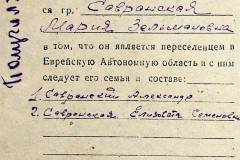 ся гр. Савранская
Мария Зельмановна
в том, что он является переселенцем в
Еврейскую Автономную область и с ним
следует его семья в составе:
1. Савранский Александр
2. Савранская Елизавета Семеновна